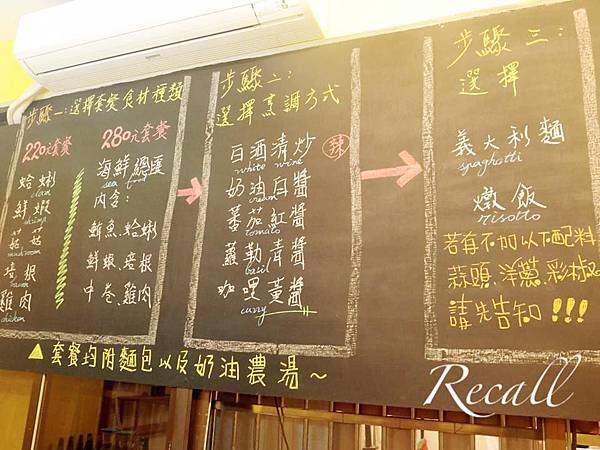 步驟一:選擇套餐食材種類
220元套餐
蛤蜊
clam
鮮蝦
shrimp
菇菇
mushroom
培根
bacon
雞肉
chicken
280元套餐
海鮮總匯
sea food
內含:
鮪魚、蛤蜊
鮮蝦、培根
中卷、雞肉
步驟二:
選擇烹調方式
白酒清炒 辣
white wine
奶油白醬
cream
蕃茄紅醬
tomato
蘿勒青醬
basil
咖哩黃醬
curry
步驟三:
選擇
義大利麵
spaghetti
燉飯
risotto
若有不加以下配料
蒜頭、洋蔥、彩椒
請先告知!!!
▲套餐均附麵包以及奶油濃湯~
Recall